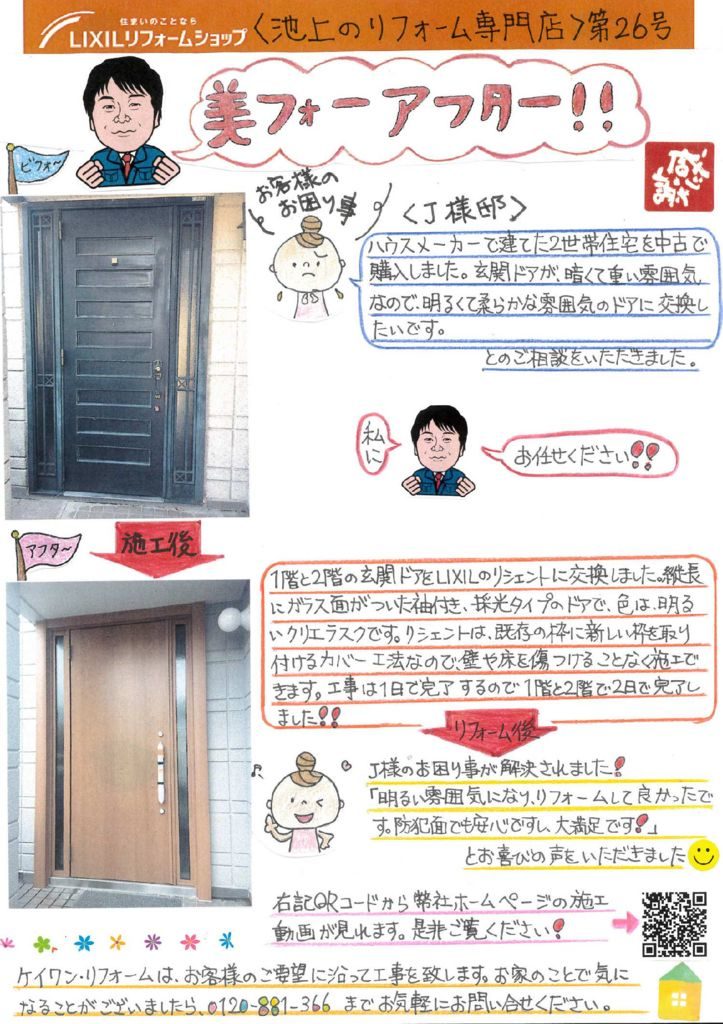 住まいのことなら
LIXILリフォームショップ
〈池上のリフォーム専門店〉第26号
美フォーアフター!!
ビフォ〜
お客様の
お困り事
〈J様邸〉
ハウスメーカーで建てた2世帯住宅を中古で
購入しました。玄関ドアが、暗くて重い雰囲気
なので、明るくて柔らかな雰囲気のドアに交換し
たいです。
とのご相談をいただきました。
私に
お任せください!!
アフタ〜
施工後
1階と2階の玄関ドアをLIXILのリシェントに交換しました。縦長
にガラス面がついた袖付き、採光タイプのドアで、色は、明る
いクリエラスクです。リシェントは、既存の枠に新しい枠を取り
付けるカバー工法なので、壁や床を傷つけることなく施工で
きます。工事は1日で完了するので1階と2階で2日で完了し
ました!!
リフォーム後
J様のお困り事が解決されました!
「明るい雰囲気になり、リフォームして良かったで
す。防犯面でも安心ですし、大満足です!」
とお喜びの声をいただきました
右記QRコードから弊社ホームページの施工
動画が見れます。是非ご覧ください!
ケイワン・リフォームは、お客様のご要望に沿って工事を致します。お家のことで気に
なることがございましたら、0120-881-366 までお気軽にお問い合せください。